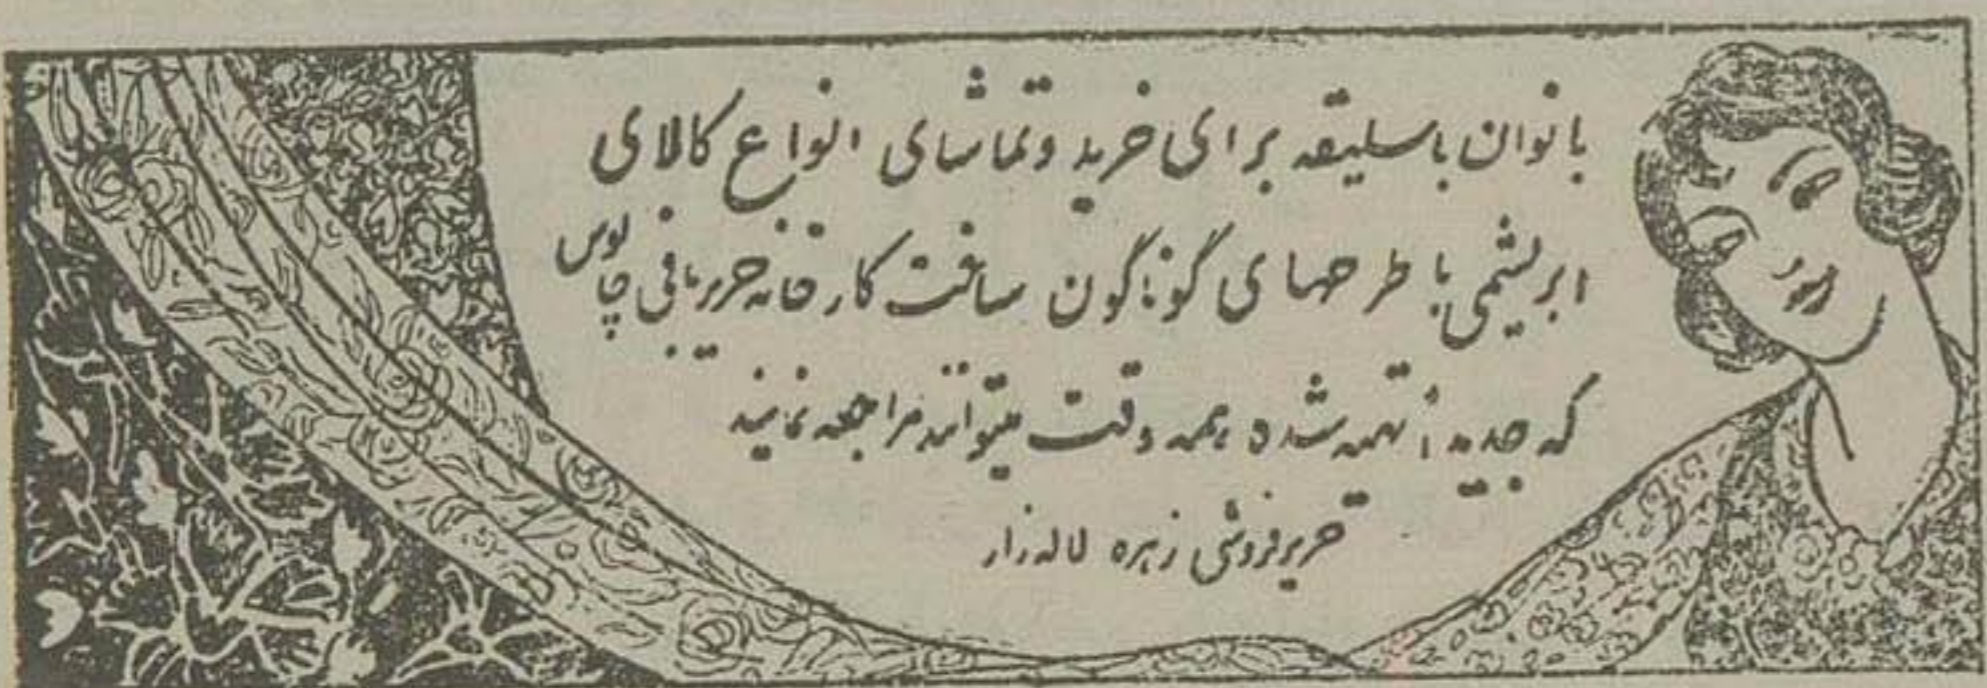 بانوان باسلیقه برای خرید وتماشای انواع کالای
ابریشمی با طرحهای گوناگون ساخت کارخانه حریربافی چالوس
که جدیداً تهیه شده همه وقت میتوانند مراجعه نمایند
حریرفروشی زهره لاله زار